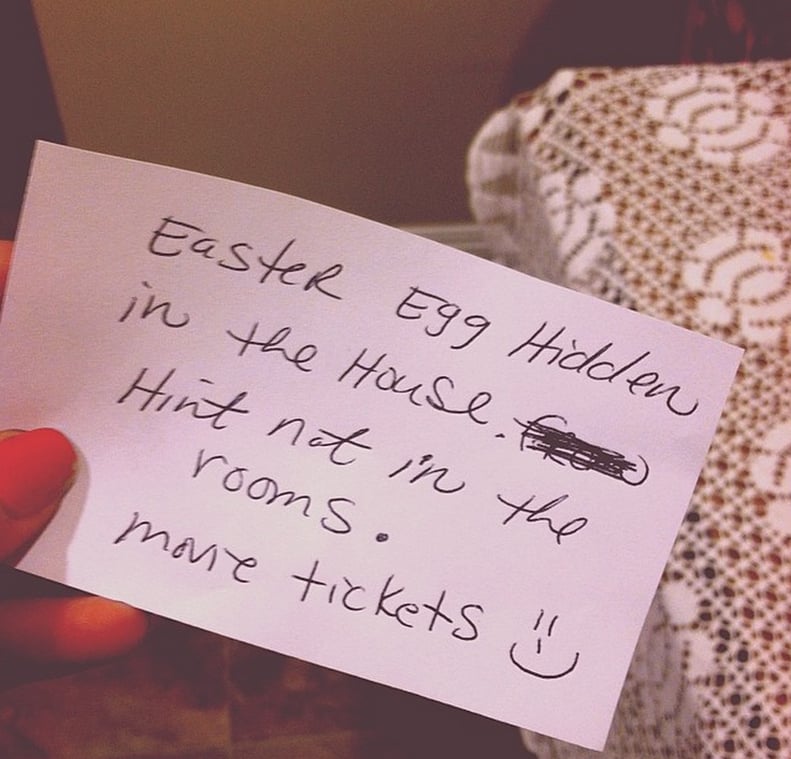 Easter Egg Hidden
in the House.
Hint not in the
rooms.
movie tickets